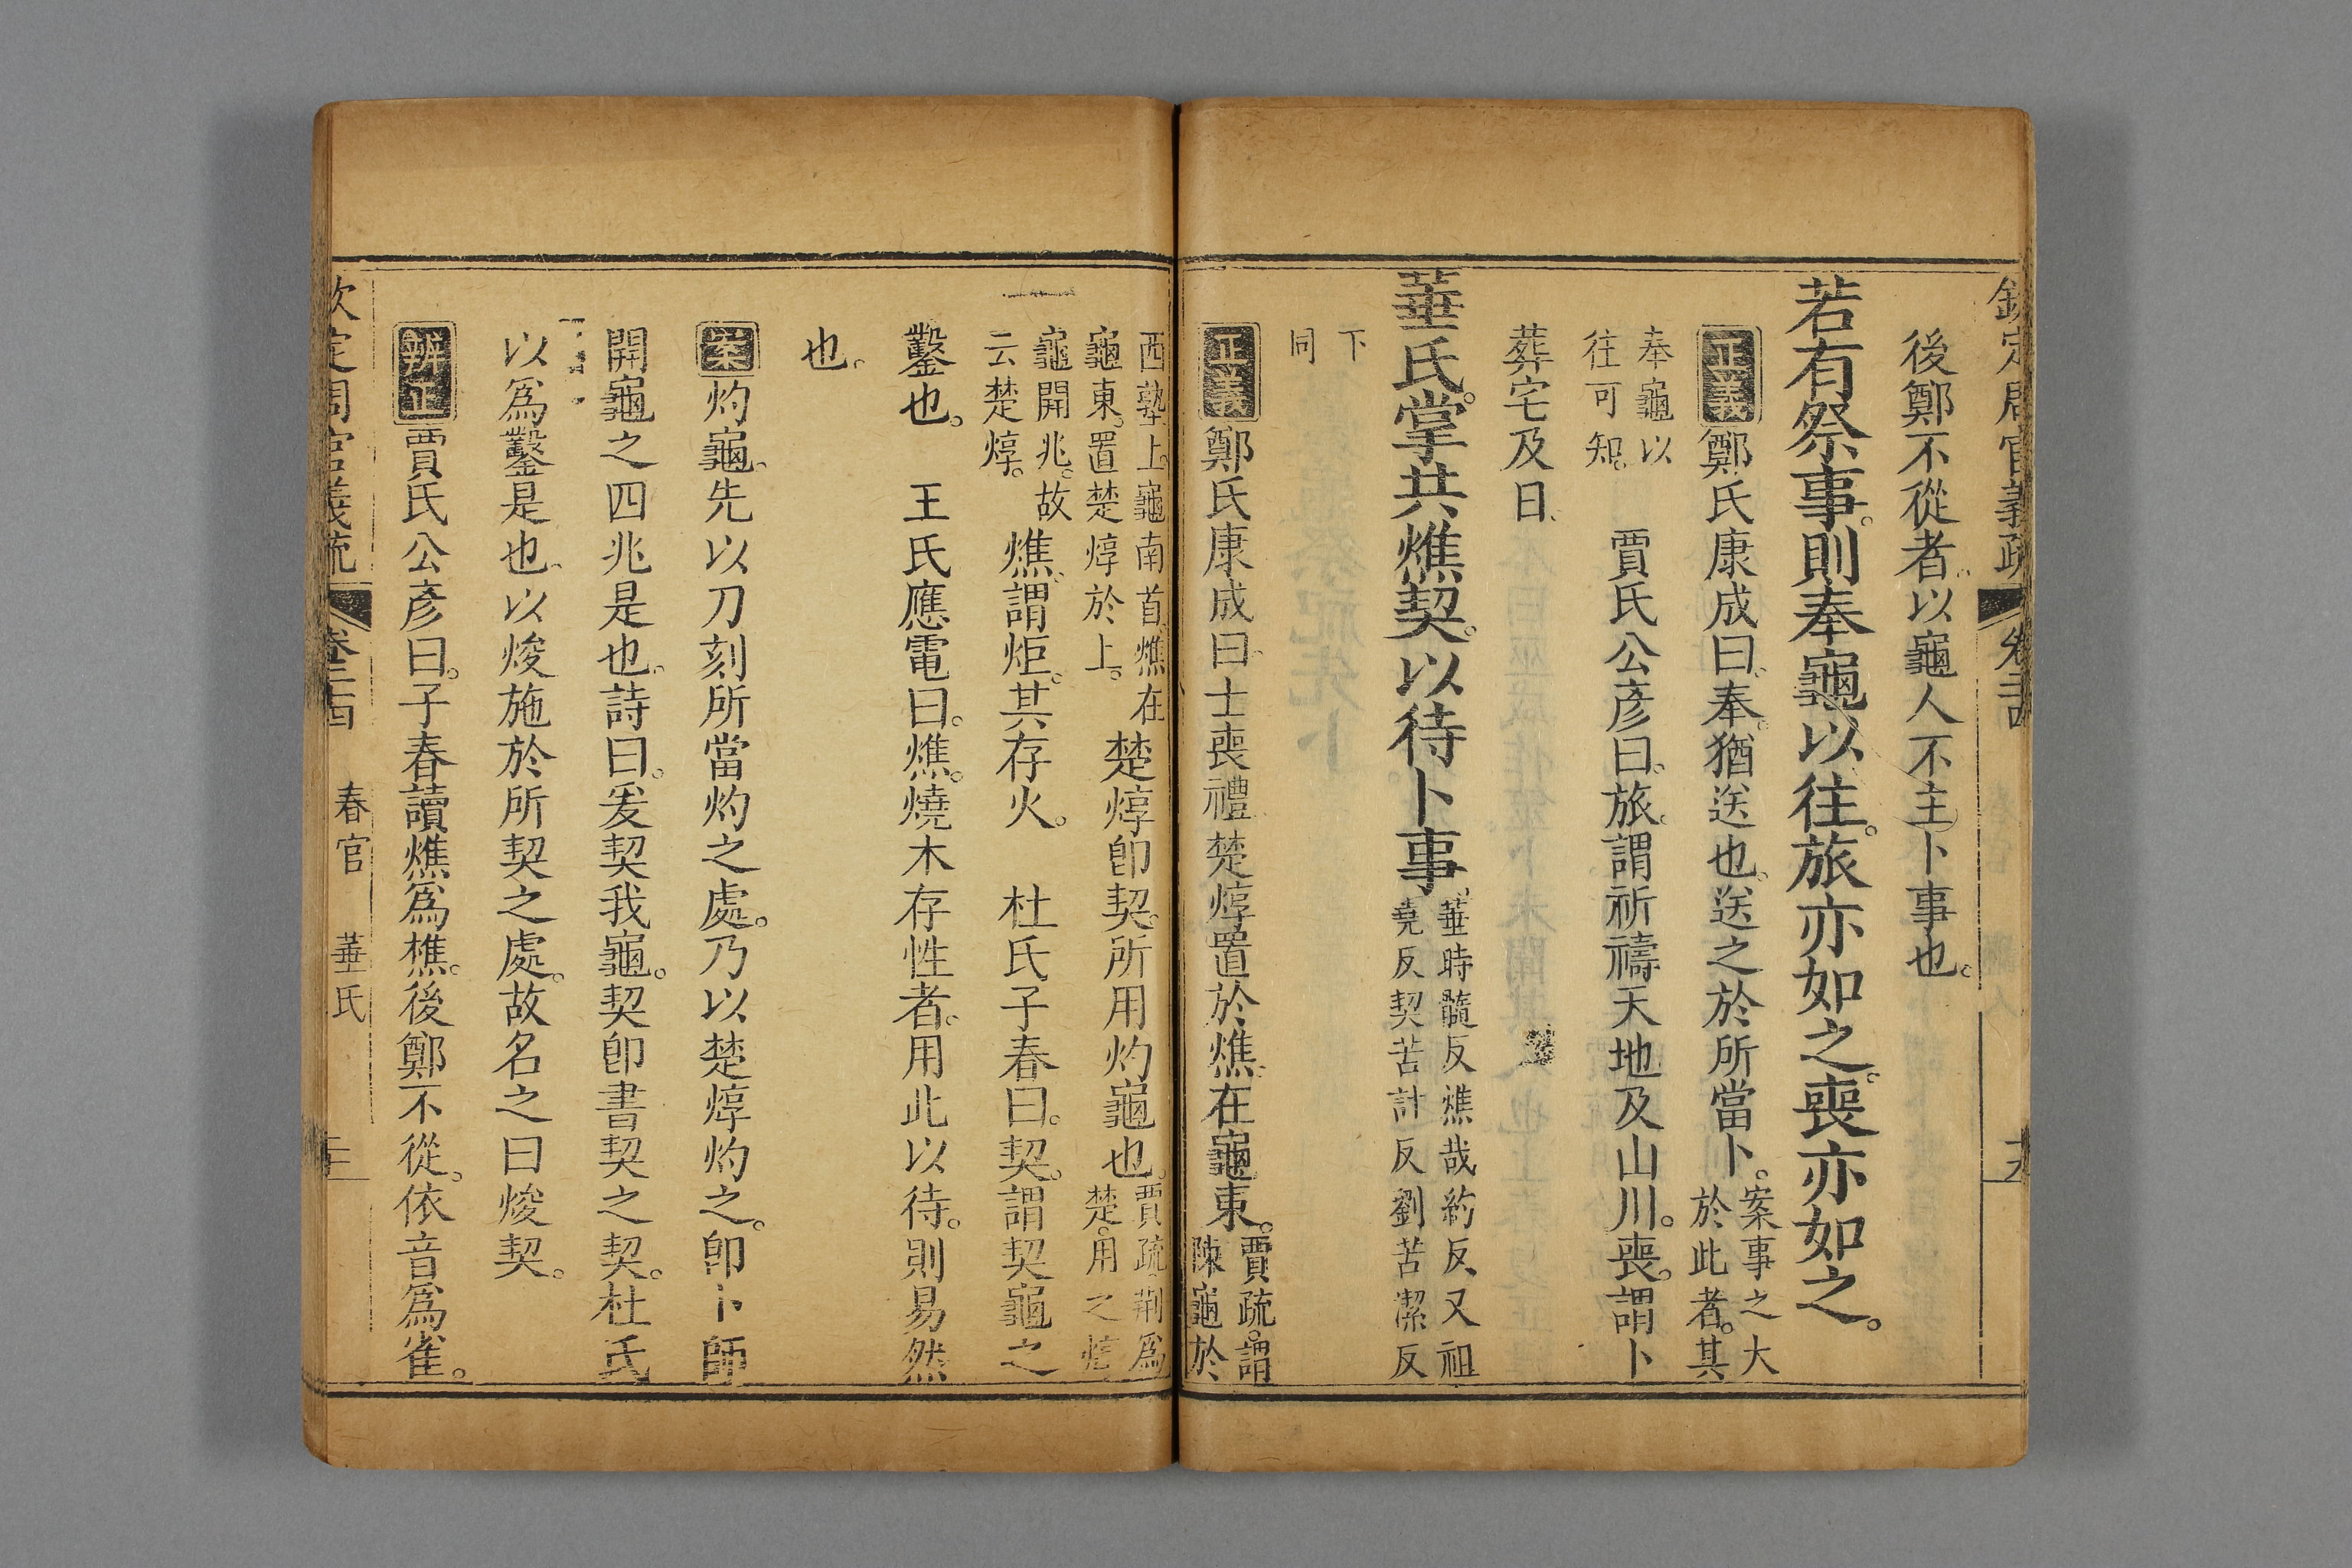 欽定周官義疏 卷二十四
後鄭不從者以龜人不主卜事也。
若有祭事。則奉龜以往。旅亦如之。喪亦如之。
正義 鄭氏康成曰、奉。猶送也。送之於所當卜。案事之大於此者。其
奉龜以往可知。 賈氏公彥曰。旅。謂祈禱天地及山川。喪。謂卜
葬宅及日、
菙氏。掌共燋契。以待卜事 菙時髓反燋哉約反又祖堯反契苦計反劉苦潔反
下同
正義 鄭氏康成曰、士喪禮楚焞置於燋在龜東。賈疏。謂陳龜於
西塾上。龜南首燋在龜東。置楚焞於上。 楚焞卽契。所用灼龜也。賈疏。荆爲楚。用之焞
龜開兆。故云楚焞。 燋。謂炬。其存火。 杜氏子春曰。契。謂契龜之
鑿也。 王氏應電曰。燋。燒木存性者。用此以待。則易然
也。
案 灼龜。先以刀刻所當灼之處。乃以楚焞灼之。卽卜師
開龜之四兆是也。詩曰。爰契我龜。契卽書契之契。杜氏
以爲鑿是也。以焌施於所契之處。故名之曰焌契。
辨正 賈氏公彥曰。子春讀燋爲樵。後鄭不從。依音爲雀。
欽定周官義疏 卷二十四 春官 菙氏